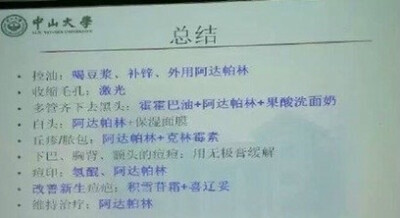 中山大學
总结
控油：喝豆浆、补锌、外用阿达帕林
收缩毛孔：激光
多管齐下去黑头：霍霍巴油+阿达帕林+果酸洗面奶
白头：阿达帕林+保湿面膜
丘疹/脓包：阿达帕林+克林霉素
下巴、胸背、额头的痘痘：用无极膏缓解
痘印：氢醌、阿达帕林
改善新生痘疤：积雪苷霜+喜辽妥
维持治疗：阿达帕林